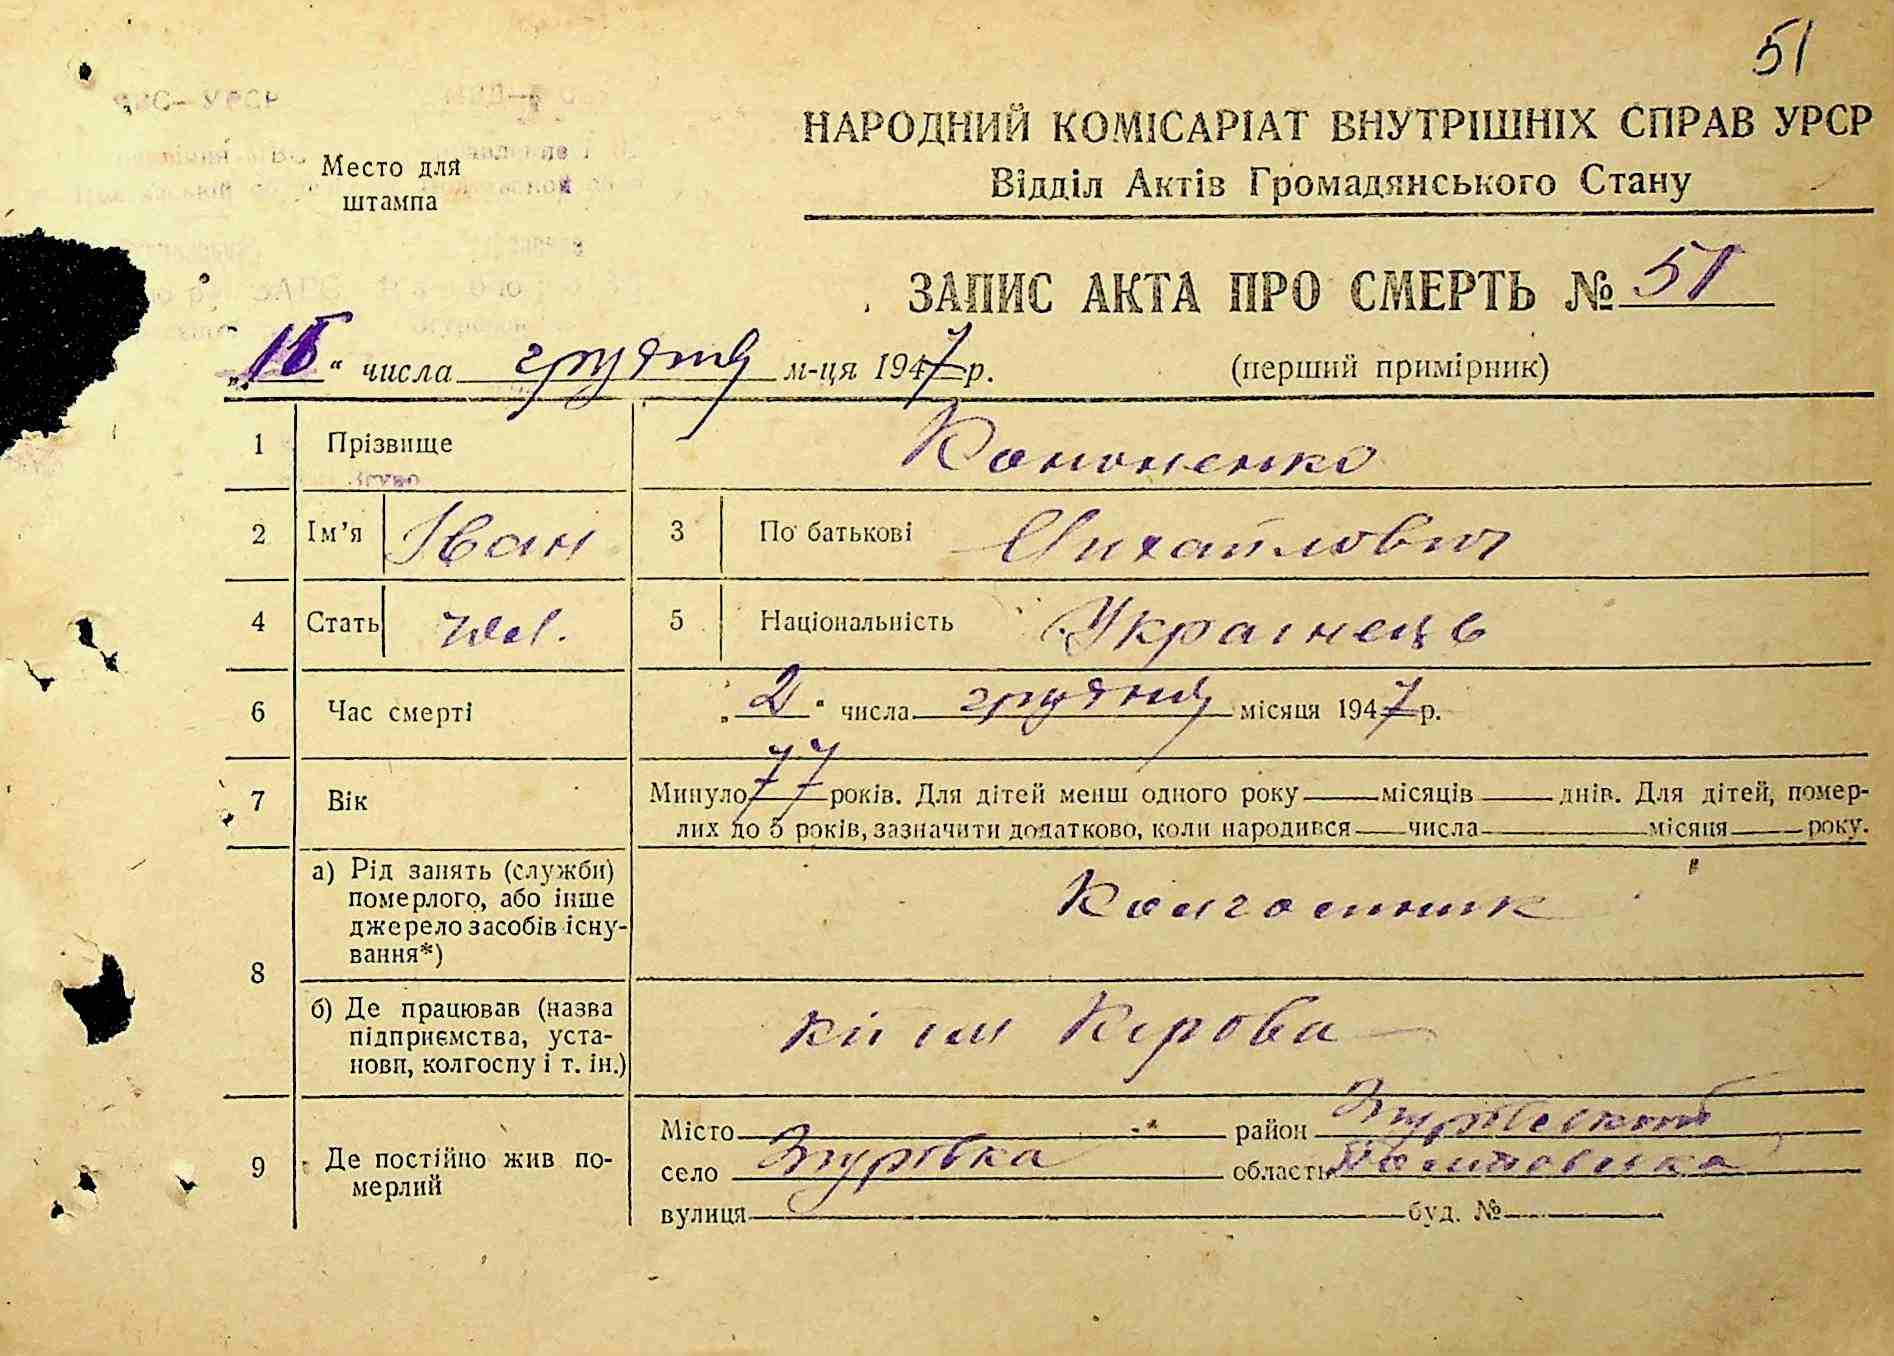 51
НАРОДНИЙ КОМІСАРІАТ ВНУТРІШНІХ СПРАВ УРСР
Відділ Актів Громадянського Стану
Место для
штампа
ЗАПИС АКТА ПРО СМЕРТЬ № 51
„15" числа грудня м-ця 1947 р. (перший примірник)
1 Прізвище Кононенко
2 Ім'я Іван 3 По батькові Михайлович
4 Стать чол. 5 Національність Українець
6 Час смерті „2" числа грудня місяця 1947 р.
7 Вік Минуло 77 років. Для дітей менш одного року — місяців — днів. Для дітей, помер-
лих до 5 років, зазначити додатково, коли народився — числа — місяця — року.
8 а) Рід занять (служби)
померлого, або інше
джерело засобів існу-
вання*) Колгоспник
б) Де працював (назва
підприємства, уста-
нови, колгоспу і т. ін.) к/г ім Кірова
9 Де постійно жив по-
мерлий
Місто район Згурівський
село Згурівка область Полтавська
вулиця буд. №